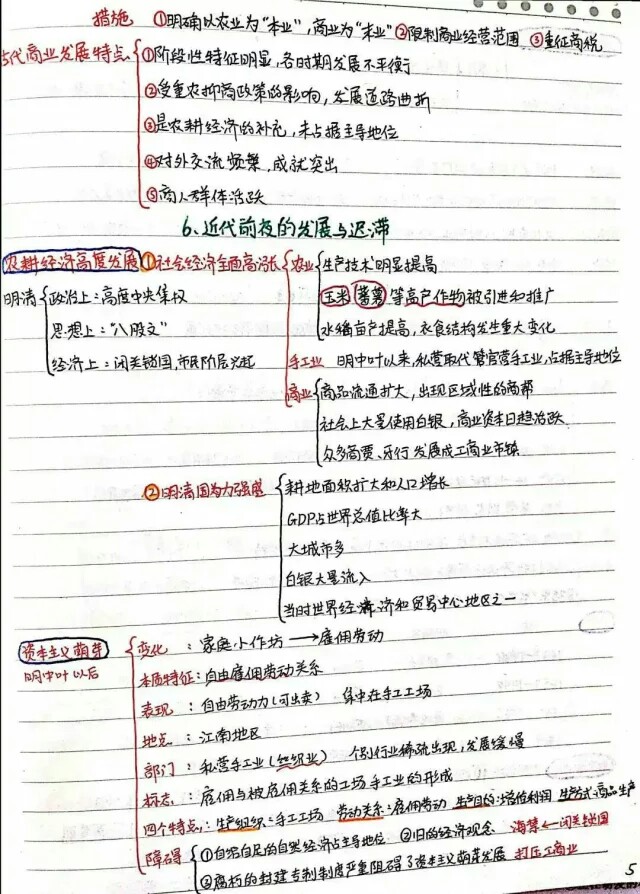 措施 ①明确以农业为“本业”，商业为“末业”②限制商业经营范围 ③重征商税
古代商业发展特点 ①阶段性特征明显，各时期发展不平衡
②受重农抑商政策的影响，发展道路曲折
③是农耕经济的补充，未占据主导地位
④对外交流频繁，成就突出
⑤商人群体活跃
6、近代前夜的发展与迟滞
农耕经济高度发展 ①社会经济全面高涨 农业 生产技术明显提高
明清 政治上：高度中央集权 玉米 番薯 等高产作物被引进和推广
思想上：“八股文” 水稻亩产提高，衣食结构发生重大变化
经济上：闭关锁国，市民阶层兴起 手工业 明中叶以来，私营取代官营手工业，占据主导地位
商业 商品流通扩大，出现区域性的商帮
社会上大量使用白银，商业资本日趋活跃
众多商贾、牙行发展成工商业市镇
②明清国力强盛 耕地面积扩大和人口增长
GDP占世界总值比率大
大城市多
白银大量流入
当时世界经济和贸易中心地区之一
资本主义萌芽 变化：家庭小作坊→雇佣劳动
明中叶以后 本质特征：自由雇佣劳动关系
表现：自由劳动力（可出卖） 集中在手工工场
地点：江南地区
部门：私营手工业（丝织业） 个别行业稀疏出现，发展缓慢
标志：雇佣与被雇佣关系的工场手工业的形成
四个特点：生产组织：手工工场 劳动关系：雇佣劳动 生产目的：增值利润 生产方式：商品生产
障碍 ①自给自足的自然经济占主导地位 ②旧的经济观念 海禁←闭关锁国
③腐朽的封建专制制度严重阻碍了资本主义萌芽发展 打压工商业
5